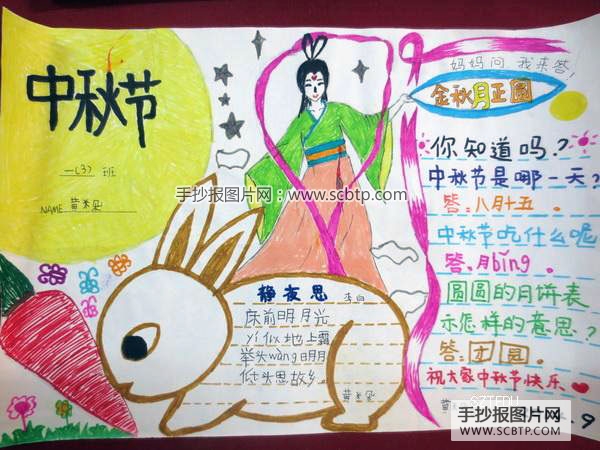 中秋节
一(3) 班
NAME 黄禾见
妈妈问 我来答,
金秋月正圆
你知道吗?
中秋节是哪一天?
答:八月十五。
中秋节吃什么呢
答:月bǐng。
圆圆的月饼表
示怎样的意思?
答:团圆。
祝大家中秋节快乐
静夜思 李白
床前明月光
yí似地上霜
举头wàng明月
低头思故乡。
手抄报图片网:www.scbtp.com
手抄报图片网
WWW.SCBTP.COM